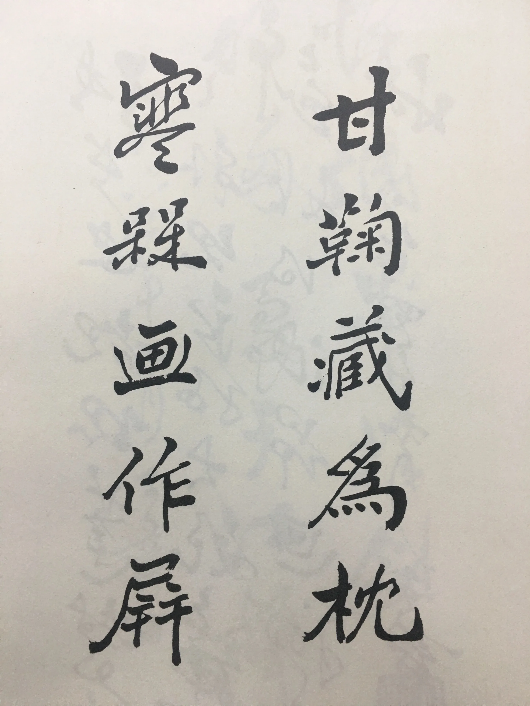 甘鞠藏爲枕
寒槑画作屏